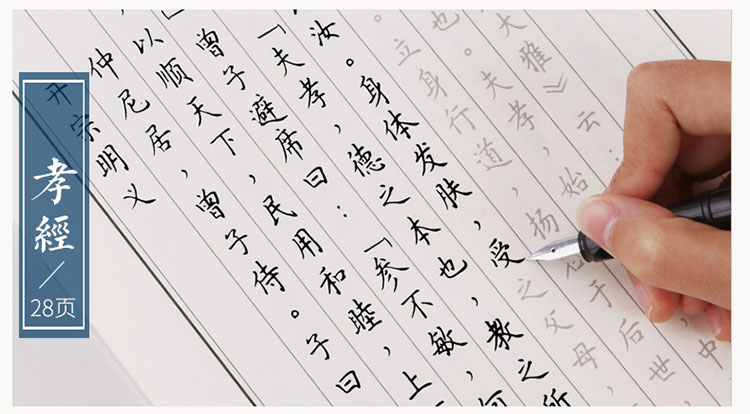 孝經
28页
开宗明义
仲尼居，曾子侍。子曰
以顺天下，民用和睦，上
」曾子避席曰：「参不敏，何
「夫孝，德之本也，教之所
汝。身体发肤，受之父母，
立身行道，扬名于后世，
也。夫孝，始 中
大雅》云：